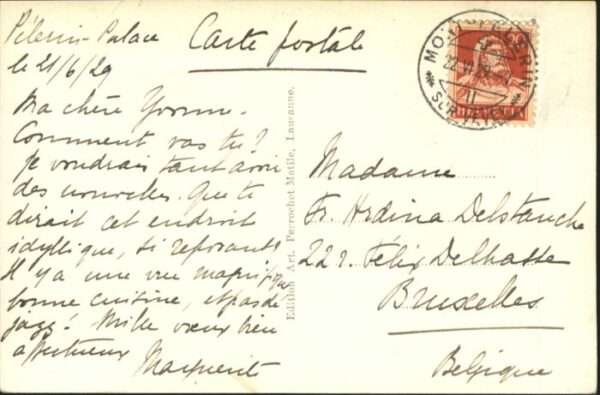 Pélerin-Palace
le 21/6/29
Carte postale
Ma chère Yvonne.
Comment vas tu?
Je voudrais tant avoir
des nouvelles. Que te
dirait cet endroit
idyllique, si reposant!
Il y a une vue magnifique
bonne cuisine, et pas de
jazz! Mille vœux bien
affectueux
Edition Art. Perrochet Matile, Lausanne.
HELVETIA
Madame
Fr. Ardina Delstanche
22 r. Félix Delhasse
Bruxelles
Belgique